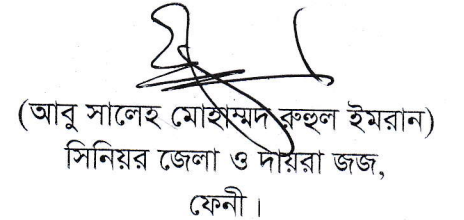 (আবু সালেহ মোহাম্মদ রুহুল ইমরান)
সিনিয়র জেলা ও দায়রা জজ,
ফেনী।